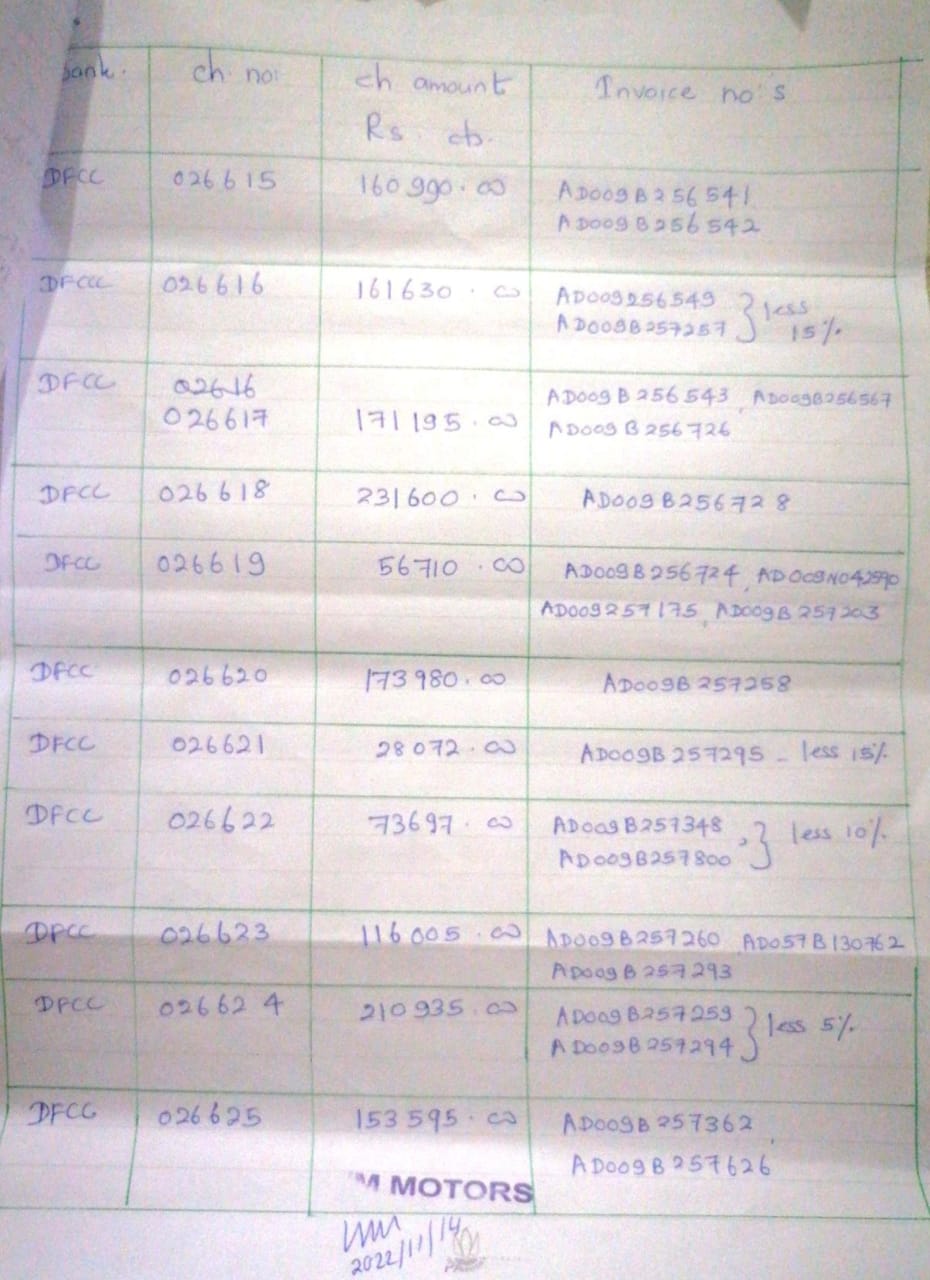 bank. ch. no: ch amount Invoice no's
Rs. cts.
DFCC 026615 160990.00 AD009B256541
AD009B256542
DFCC 026616 161630.00 AD009256549 } less
AD009B257257 15%
DFCC 02616 AD009B256543, AD009B256567
026617 171195.00 AD009B256726
DFCC 026618 231600.00 AD009B256728
DFCC 026619 56710.00 AD009B256724, AD009N042590
AD009257175, AD009B257203
DFCC 026620 173980.00 AD009B257258
DFCC 026621 28072.00 AD009B257295 - less 15%
DFCC 026622 73697.00 AD009B257348, } less 10%
AD009B257800
DFCC 026623 116005.00 AD009B257260, AD057B130762
AD009B257293
DFCC 026624 210935.00 AD009B257259 } less 5%
AD009B257294
DFCC 026625 153595.00 AD009B257362,
AD009B257626
M MOTORS
2022/11/14